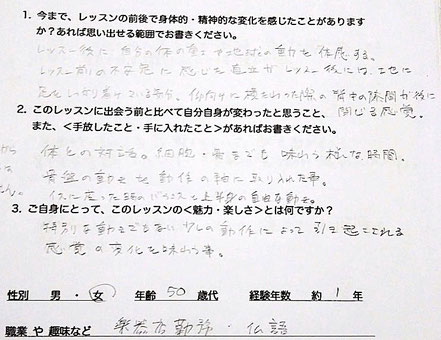 1. 今まで、レッスンの前後で身体的・精神的な変化を感じたことがあります
か？あれば思い出せる範囲でお書きください。
レッスン後に自分の体の重さや地球の動を体感する。
レッスン前の不安定に感じた直立がレッスン後には
足をしっかり着けている
仰向けに寝そべった際の背中の隙間が後に
閉じる感覚。
2. このレッスンに出会う前と比べて自分自身が変わったと思うこと、
また、＜手放したこと・手に入れたこと＞があればお書きください。
から 体との対話。細胞・骨までも味わう様な時間。
骨盤の動きを動作の軸に取り入れた事。
座った時のバランスと上半身の自由な動き。
せん。
3. ご自身にとって、このレッスンの＜魅力・楽しさ＞とは何ですか？
特別な動きでもない少しの動作によって引き起こされる
感覚の変化を味わう事。
性別 男 ・ 女 年齢 50 歳代 経験年数 約 1 年
職業 や 趣味など 楽器店勤務・仏語